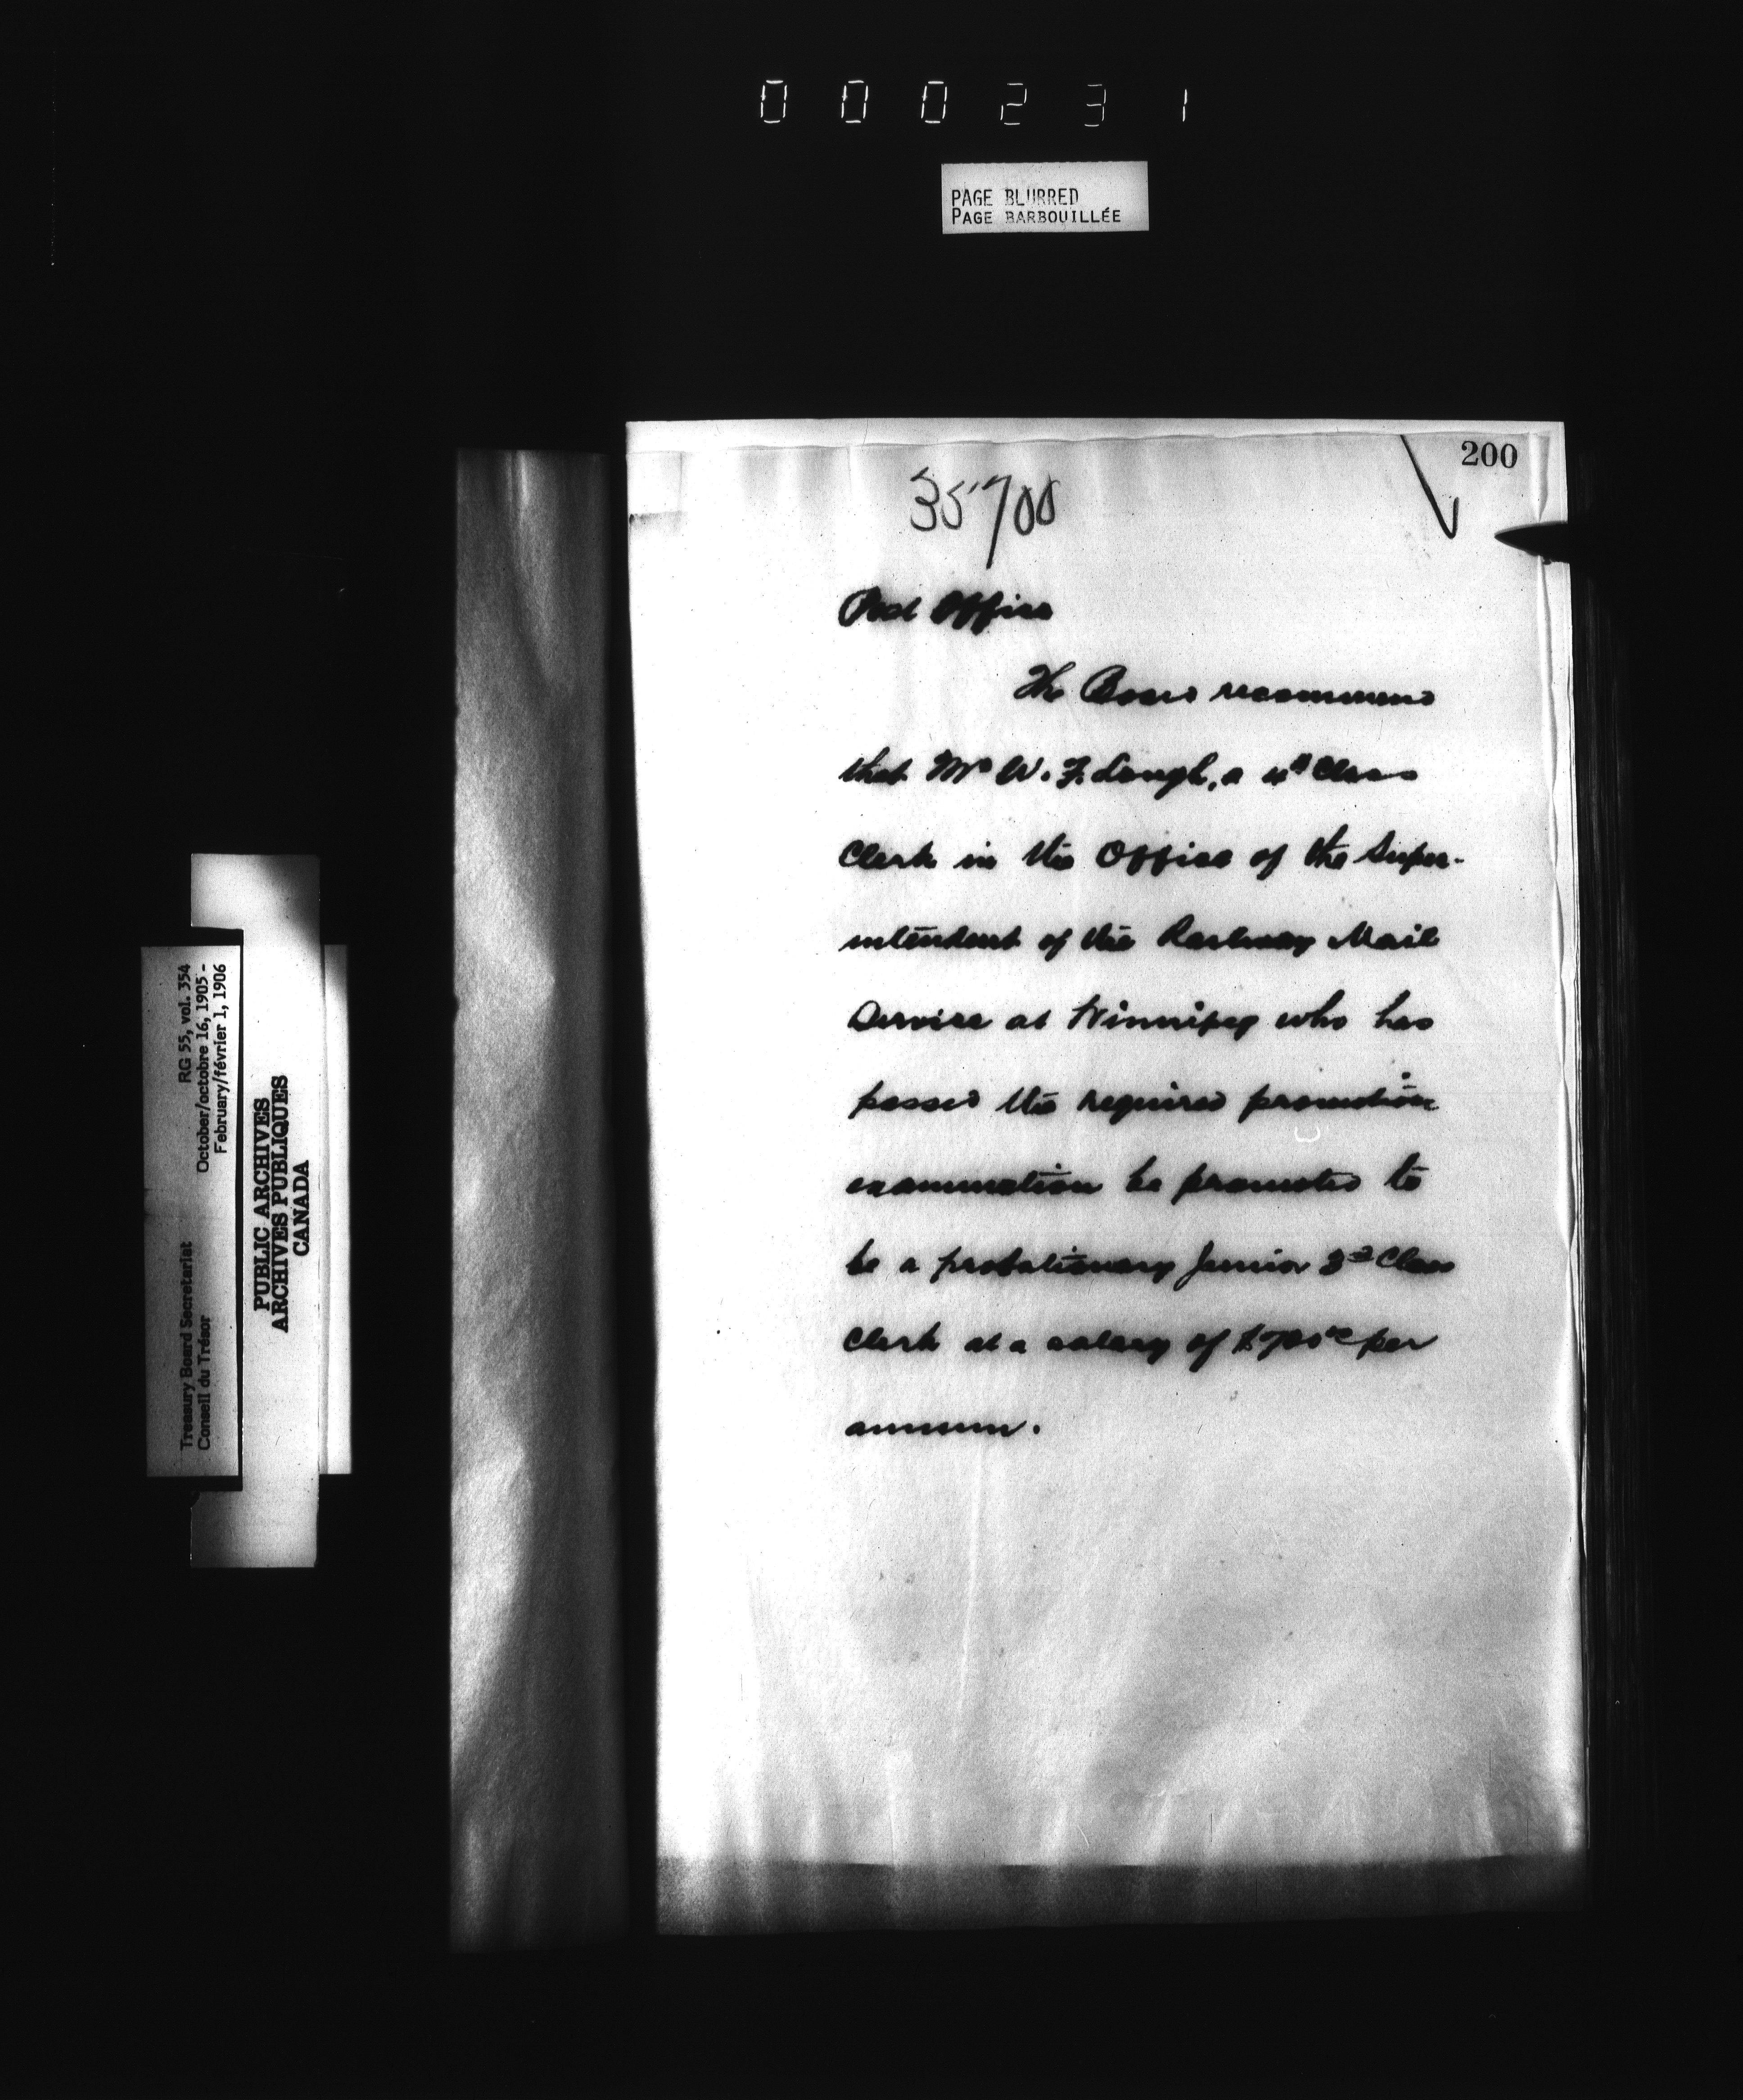 000231
PAGE BLURRED
PAGE BARBOUILLÉE
200
35700
Post Office
The Board recommend
that Mr W. F. Lough, a 4th Class
Clerk in the Office of the Super-
intendent of the Railway Mail
Service at Winnipeg who has
passed the required promotion
examination be promoted to
be a probationary Junior 3rd Class
Clerk at a salary of $700 00 per
annum.
Treasury Board Secretariat RG 55, vol. 354
Conseil du Trésor October/octobre 16, 1905 -
February/février 1, 1906
PUBLIC ARCHIVES
ARCHIVES PUBLIQUES
CANADA